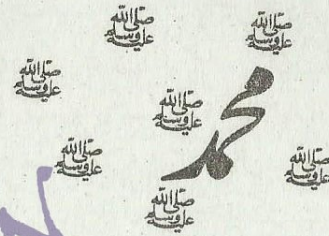 صلى الله عليه وسلم
صلى الله عليه وسلم
صلى الله عليه وسلم
صلى الله عليه وسلم
محمد
صلى الله عليه وسلم
صلى الله عليه وسلم
صلى الله عليه وسلم